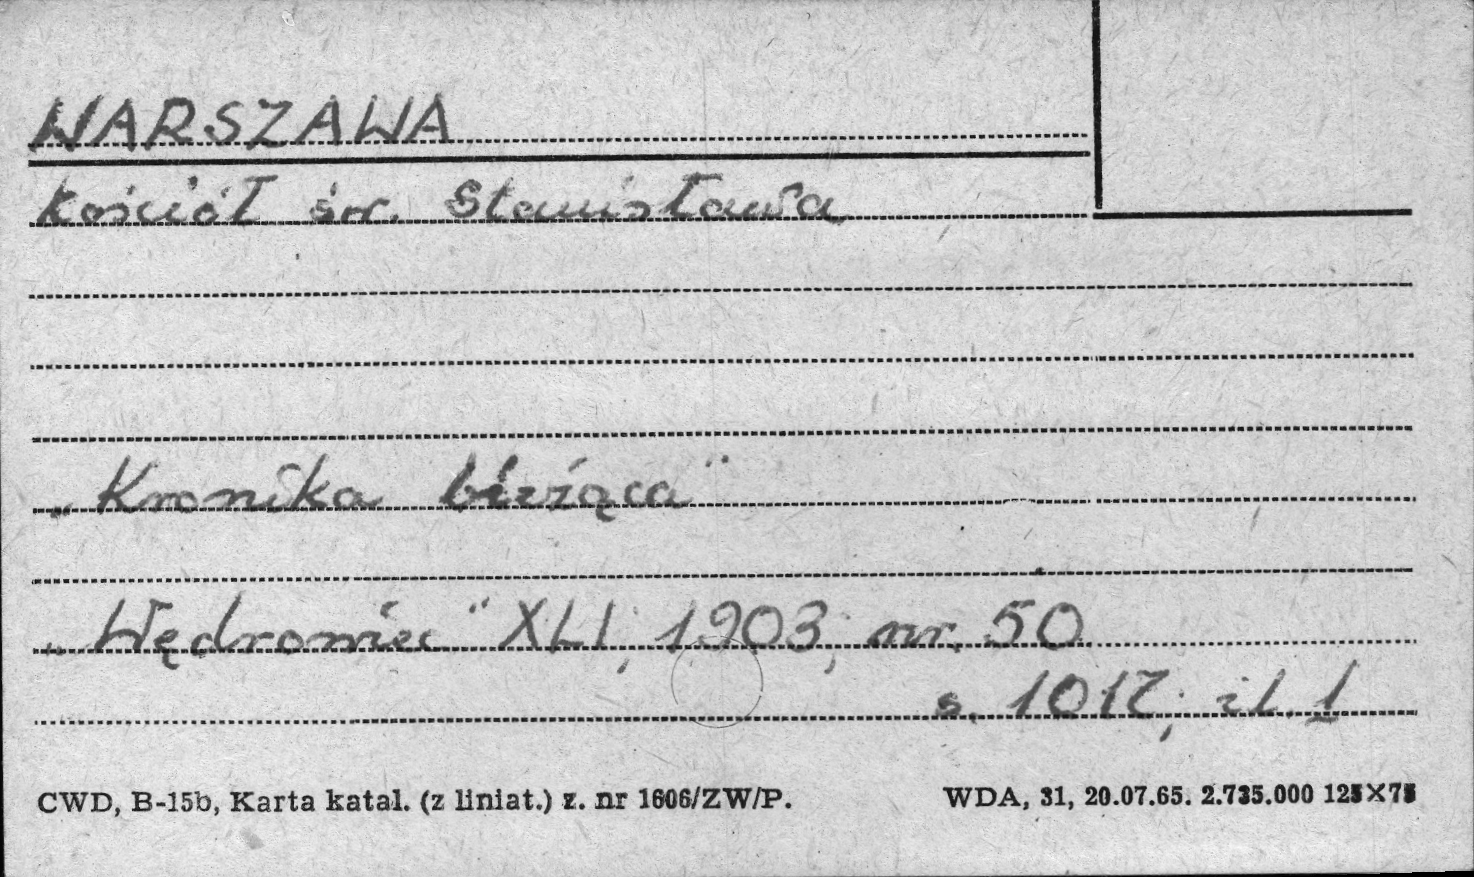 WARSZAWA
Kościół św. Stanisława
„Kronika bieżąca"
„Wędrowiec" XLI, 1903, nr. 50
s. 1017, il. 1
CWD, B-15b, Karta katal. (z liniat.) z. nr 1606/ZW/P.
WDA, 31, 20.07.65. 2.735.000 125×75